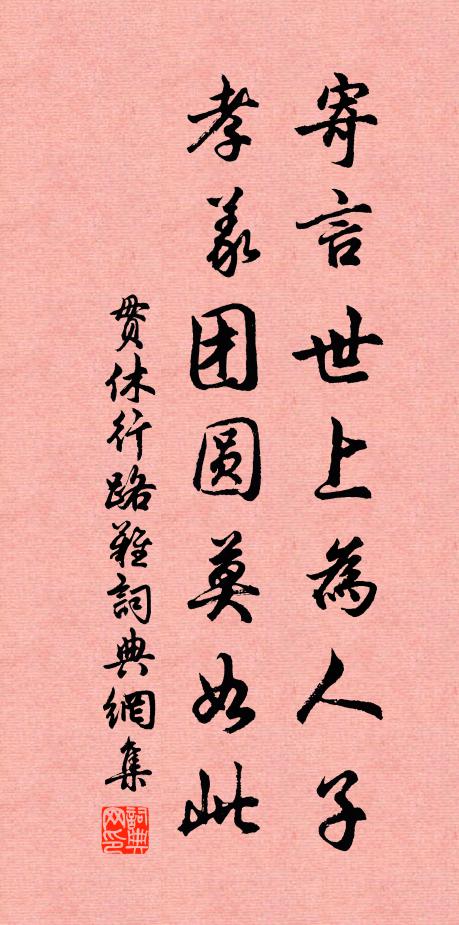 寄言世上為人子
孝義团圆莫如此
贯休行路難詞典網集
詞典网印